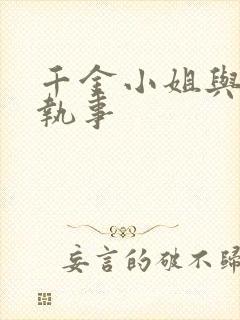 千金小姐與
執事
妄言的破不歸